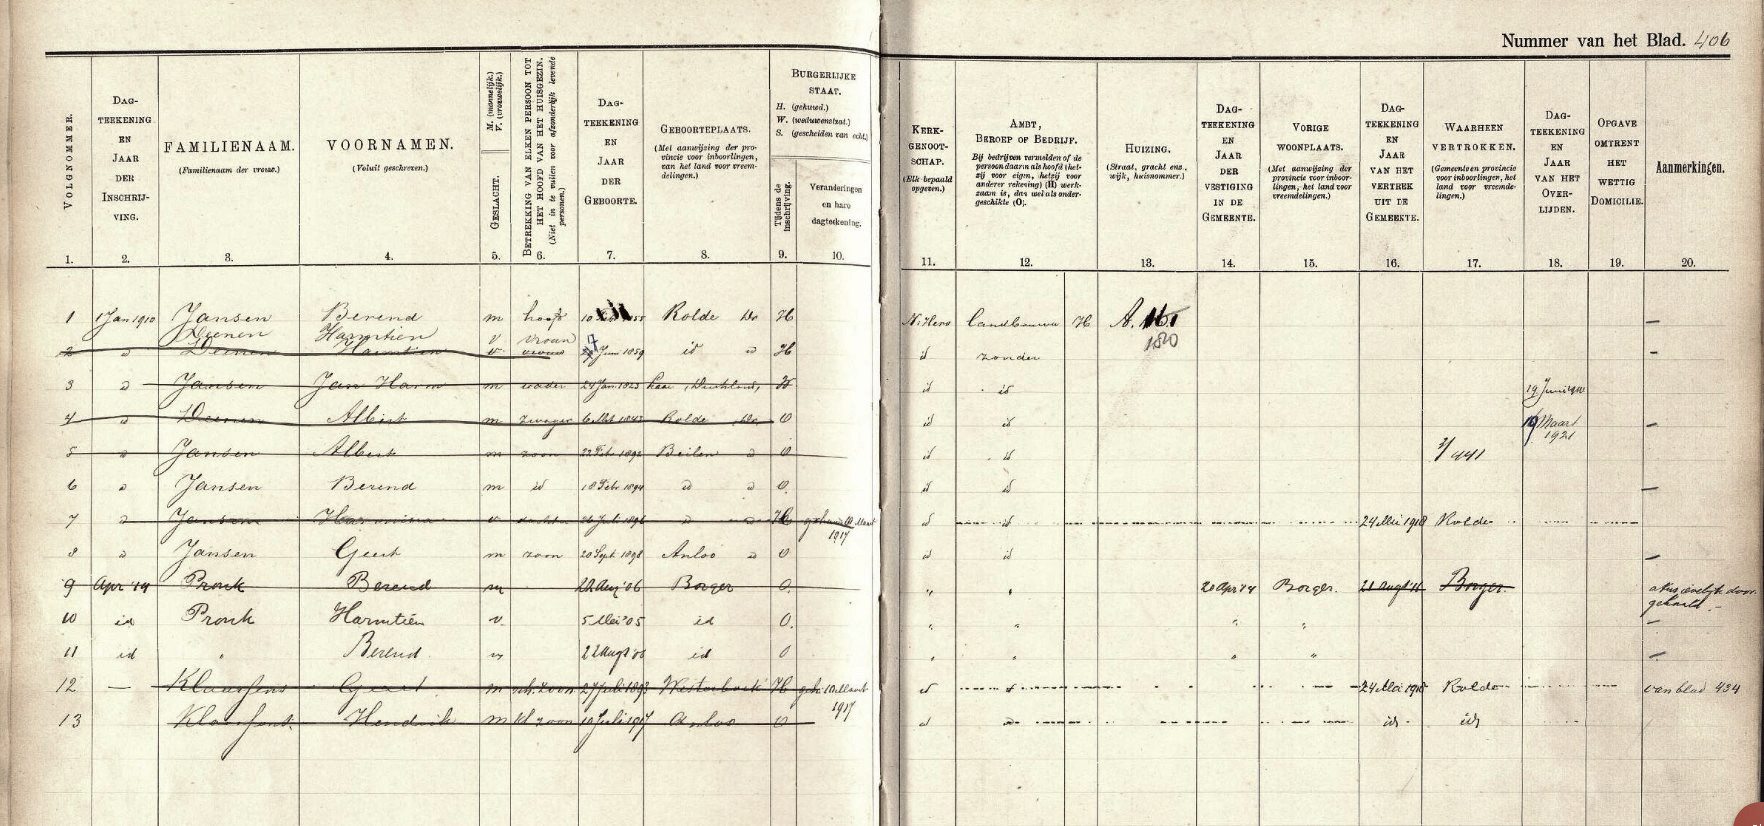 Nummer van het Blad. 406
VOLGNOMMER.
DAG-
TEEKENING
EN
JAAR
DER
INSCHRIJ-
VING.
FAMILIENAAM.
(Familienaam der vrouw.)
VOORNAMEN.
(Voluit geschreven.)
GESLACHT.
M. (mannelijk.)
V. (vrouwelijk.)
BETREKKING VAN ELKEN PERSOON TOT
HET HOOFD VAN HET HUISGEZIN.
(Niet in te vullen voor afzonderlijk levende
personen.)
DAG-
TEEKENING
EN
JAAR
DER
GEBOORTE.
GEBOORTEPLAATS.
(Met aanwijzing der pro-
vincie voor inboorlingen,
van het land voor vreem-
delingen.)
BURGERLIJKE
STAAT.
H. (gehuwd.)
W. (weduwenstaat.)
S. (gescheiden van echt.)
Tijdens de
inschrijving.
Veranderingen
en hare
dagteekening.
KERK-
GENOOT-
SCHAP.
(Elk bepaald
opgeven.)
AMBT,
BEROEP OF BEDRIJF.
Bij bedrijven vermelden of de
persoon daarin als hoofd (het-
zij voor eigen, hetzij voor
anderer rekening) (H) werk-
zaam is, dan wel als onder-
geschikte (O).
HUIZING.
(Straat, gracht enz.,
wijk, huisnummer.)
DAG-
TEEKENING
EN
JAAR
DER
VESTIGING
IN DE
GEMEENTE.
VORIGE
WOONPLAATS.
(Met aanwijzing der
provincie voor inboor-
lingen, het land voor
vreemdelingen.)
DAG-
TEEKENING
EN
JAAR
VAN HET
VERTREK
UIT DE
GEMEENTE.
WAARHEEN
VERTROKKEN.
(Gemeente en provincie
voor inboorlingen, het
land voor vreemde-
lingen.)
DAG-
TEEKENING
EN
JAAR
VAN HET
OVER-
LIJDEN.
OPGAVE
OMTRENT
HET
WETTIG
DOMICILIE.
Aanmerkingen.
1. 2. 3. 4. 5. 6. 7. 8. 9. 10. 11. 12. 13. 14. 15. 16. 17. 18. 19. 20.
1 1 Jan 1910 Jansen Berend m hoofd Rolde Do H N. Herv landbouwer H A. 161 —
180
Deenen Harmtien v vrouw
2 " Deenen Harmtien v vrouw 27 Juni 1859 id " H id zonder —
3 " Jansen Jan Harm m vader W id id 19 Juni
4 " Deenen Albert m zwager Rolde Do O id id 19 Maart
1921 —
5 " Jansen Albert m zoon 22 Febr 1892 Beilen " O id id 2/441
6 " Jansen Berend m id 18 Febr 1894 id " O. id id —
7 " Jansen Harmina v dochter 26 Juli 1896 " " H Maart
1917 id id 24 Mei 1918 Rolde
8 " Jansen Geert m zoon 20 Sept 1898 Anloo " O id id —
9 Apr '14 Pronk Berend m 22 Aug '06 Borger O. " " 20 Apr '14 Borger. 21 Aug '14 Borger.
10 id Pronk Harmtien v. 5 Mei '05 id O. " " " " —
11 id " Berend m 22 Aug '06 id O " " " " —
12 — Klaassens Geert m sch. zoon 27 Juli 1893 Westerbork H geh. 10 Maart
1917 id id 24 Mei 1918 Rolde van blad 434
13 Klaassens. Hendrik m kl zoon 10 Juli 1917 Anloo O id " id id